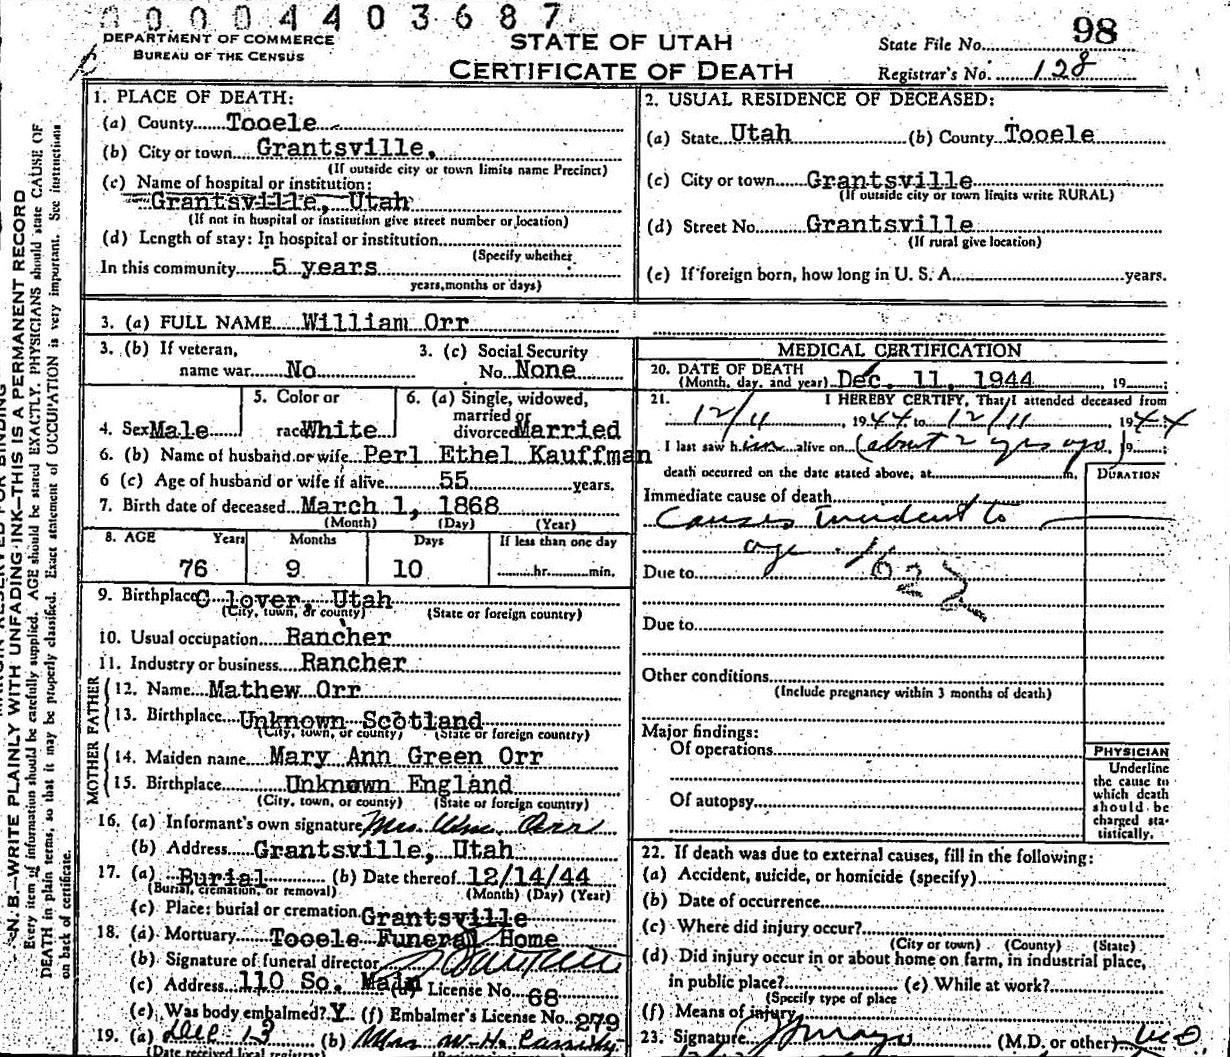 00004403687
DEPARTMENT OF COMMERCE
BUREAU OF THE CENSUS
STATE OF UTAH
CERTIFICATE OF DEATH
State File No. 98
Registrar's No. 128
1. PLACE OF DEATH:
(a) County Tooele
(b) City or town Grantsville.
(If outside city or town limits name Precinct)
(c) Name of hospital or institution:
Grantsville, Utah
(If not in hospital or institution give street number or location)
(d) Length of stay: In hospital or institution
(Specify whether
In this community 5 years
years, months or days)
2. USUAL RESIDENCE OF DECEASED:
(a) State Utah (b) County Tooele
(c) City or town Grantsville
(If outside city or town limits write RURAL)
(d) Street No. Grantsville
(If rural give location)
(e) If foreign born, how long in U. S. A. years.
3. (a) FULL NAME William Orr
3. (b) If veteran,
name war No
3. (c) Social Security
No. None
4. Sex Male
5. Color or
race White
6. (a) Single, widowed,
married or
divorced Married
6. (b) Name of husband or wife Perl Ethel Kauffman
6 (c) Age of husband or wife if alive 55 years.
7. Birth date of deceased March 1, 1868
(Month) (Day) (Year)
8. AGE Years Months Days If less than one day
76 9 10 hr. min.
9. Birthplace Clover, Utah
(City, town, or county) (State or foreign country)
10. Usual occupation Rancher
11. Industry or business Rancher
FATHER
12. Name Mathew Orr
13. Birthplace Unknown Scotland
(City, town, or county) (State or foreign country)
MOTHER
14. Maiden name Mary Ann Green Orr
15. Birthplace Unknown England
(City, town, or county) (State or foreign country)
16. (a) Informant's own signature Mrs. Wm. Orr
(b) Address Grantsville, Utah
17. (a) Burial (b) Date thereof 12/14/44
(Burial, cremation, or removal) (Month) (Day) (Year)
(c) Place: burial or cremation Grantsville
18. (a) Mortuary Tooele Funeral Home
(b) Signature of funeral director
(c) Address 110 So. Main (d) License No. 68
(e) Was body embalmed? Y (f) Embalmer's License No. 279
19. (a) Dec 13 (b) Mrs W. H. Cassidy
(Date received local registrar)
MEDICAL CERTIFICATION
20. DATE OF DEATH
(Month, day, and year) Dec. 11, 1944, 19 ;
21. I HEREBY CERTIFY, That I attended deceased from
12/11 1944 to 12/11 1944
I last saw him alive on (about 2 yrs ago) 19
death occurred on the date stated above, at m.
DURATION
Immediate cause of death
Causes Incident to
age 162
Due to
Due to
Other conditions
(Include pregnancy within 3 months of death)
Major findings:
Of operations
Of autopsy
PHYSICIAN
Underline
the cause to
which death
should be
charged sta-
tistically.
22. If death was due to external causes, fill in the following:
(a) Accident, suicide, or homicide (specify)
(b) Date of occurrence
(c) Where did injury occur?
(City or town) (County) (State)
(d) Did injury occur in or about home on farm, in industrial place,
in public place? (e) While at work?
(Specify type of place
(f) Means of injury
23. Signature (M.D. or other) MD
N. B.—WRITE PLAINLY WITH UNFADING INK—THIS IS A PERMANENT RECORD
Every item of information should be carefully supplied. AGE should be stated EXACTLY. PHYSICIANS should state CAUSE OF
DEATH in plain terms, so that it may be properly classified. Exact statement of OCCUPATION is very important. See instructions
on back of certificate.